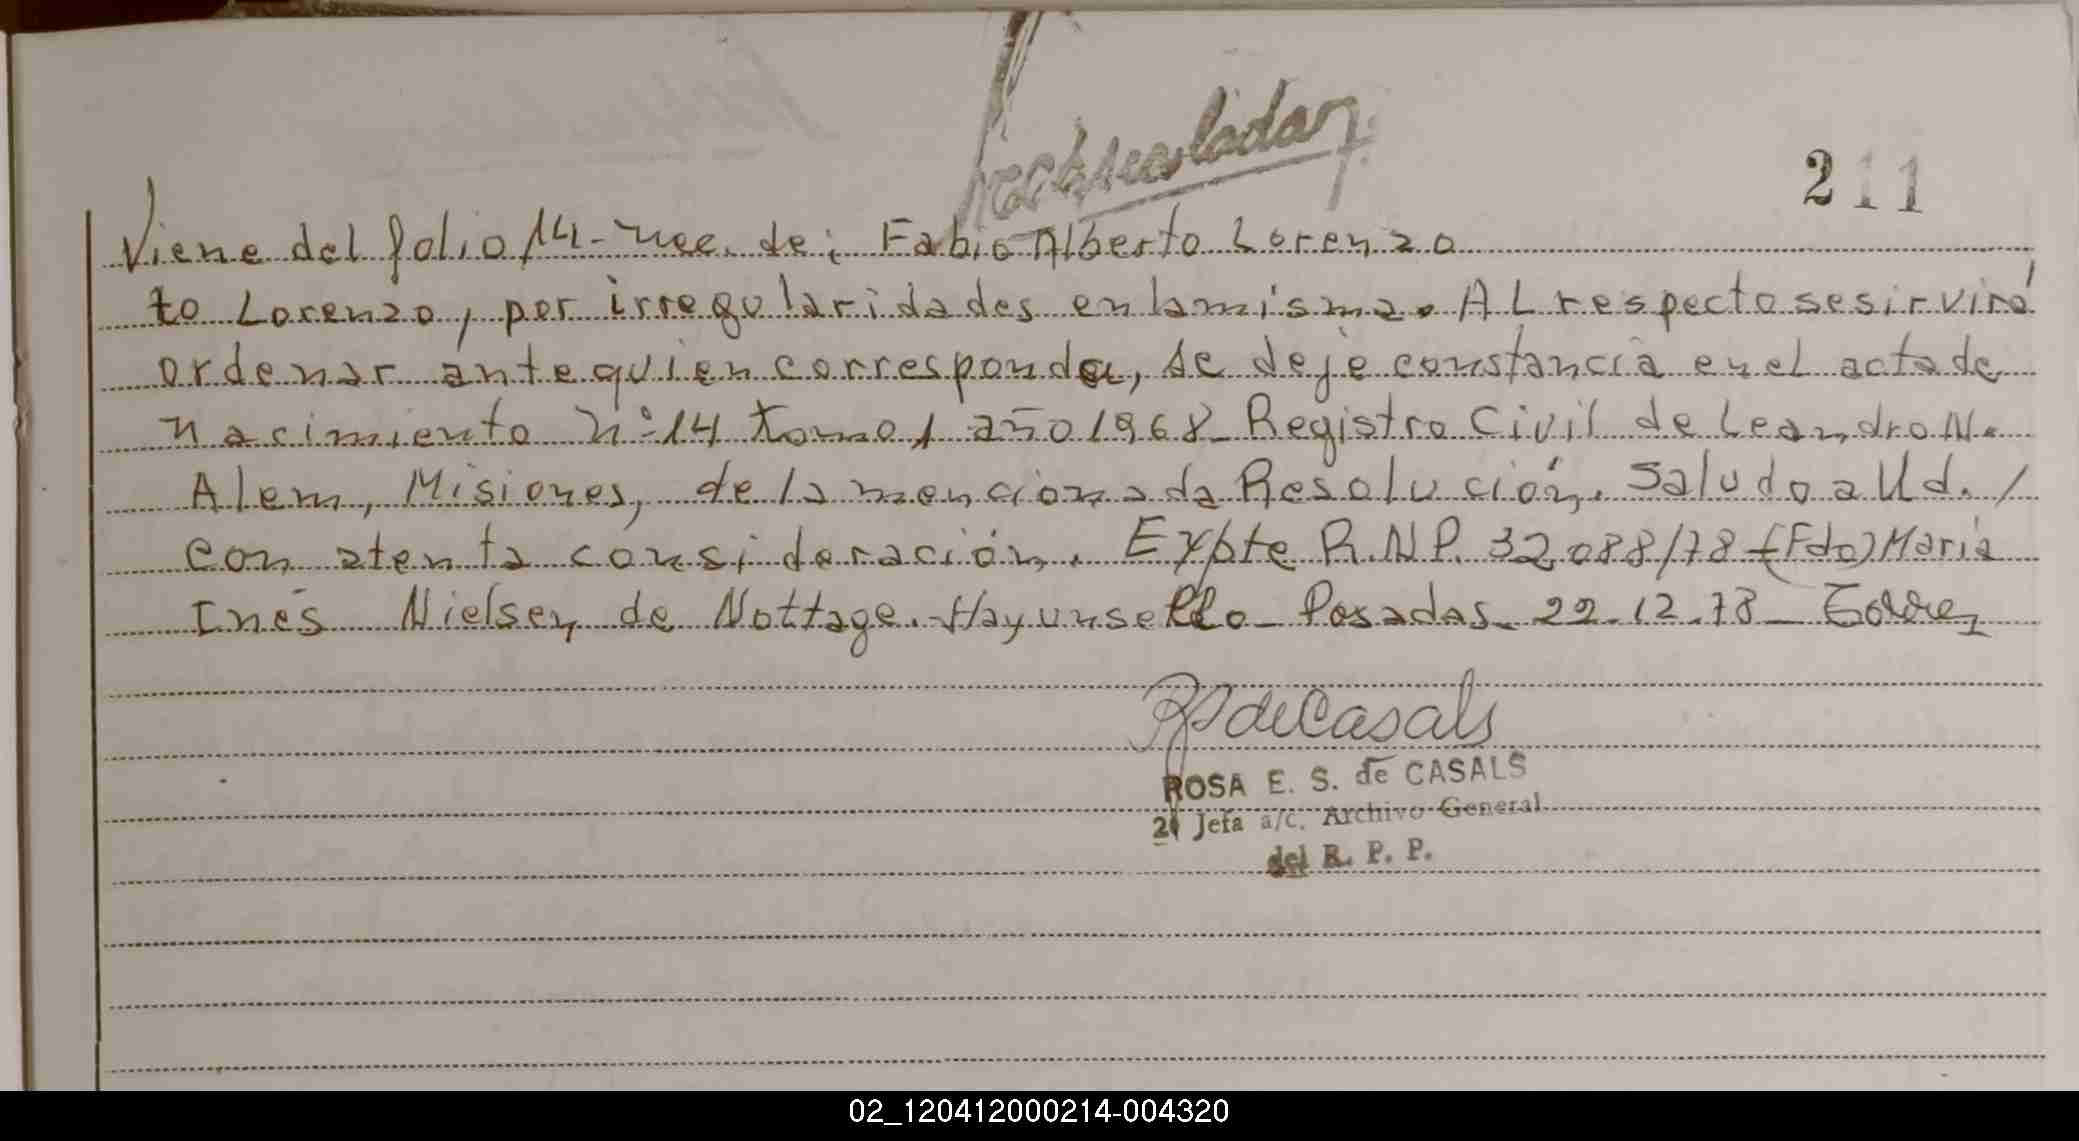 211
Viene del folio 14-nac. de: Fabio Alberto Lorenzo
to Lorenzo, por irregularidades en la misma. AL respecto se servirá
ordenar ante quien corresponda, se deje constancia en el acta de
nacimiento nº14 tomo 1 año 1968- Registro Civil de Leandro N.
Alem, Misiones, de la mencionada Resolución. Saludo a Ud. /
con atenta consideración. Expte R.N.P. 32088/78-(Fdo) Maria
Inés Nielsen de Nottage. Hay un sello- Posadas- 22.12.78-
R S de Casals
ROSA E. S. de CASALS
2ª Jefa a/c. Archivo General
del R. P. P.
02_120412000214-004320